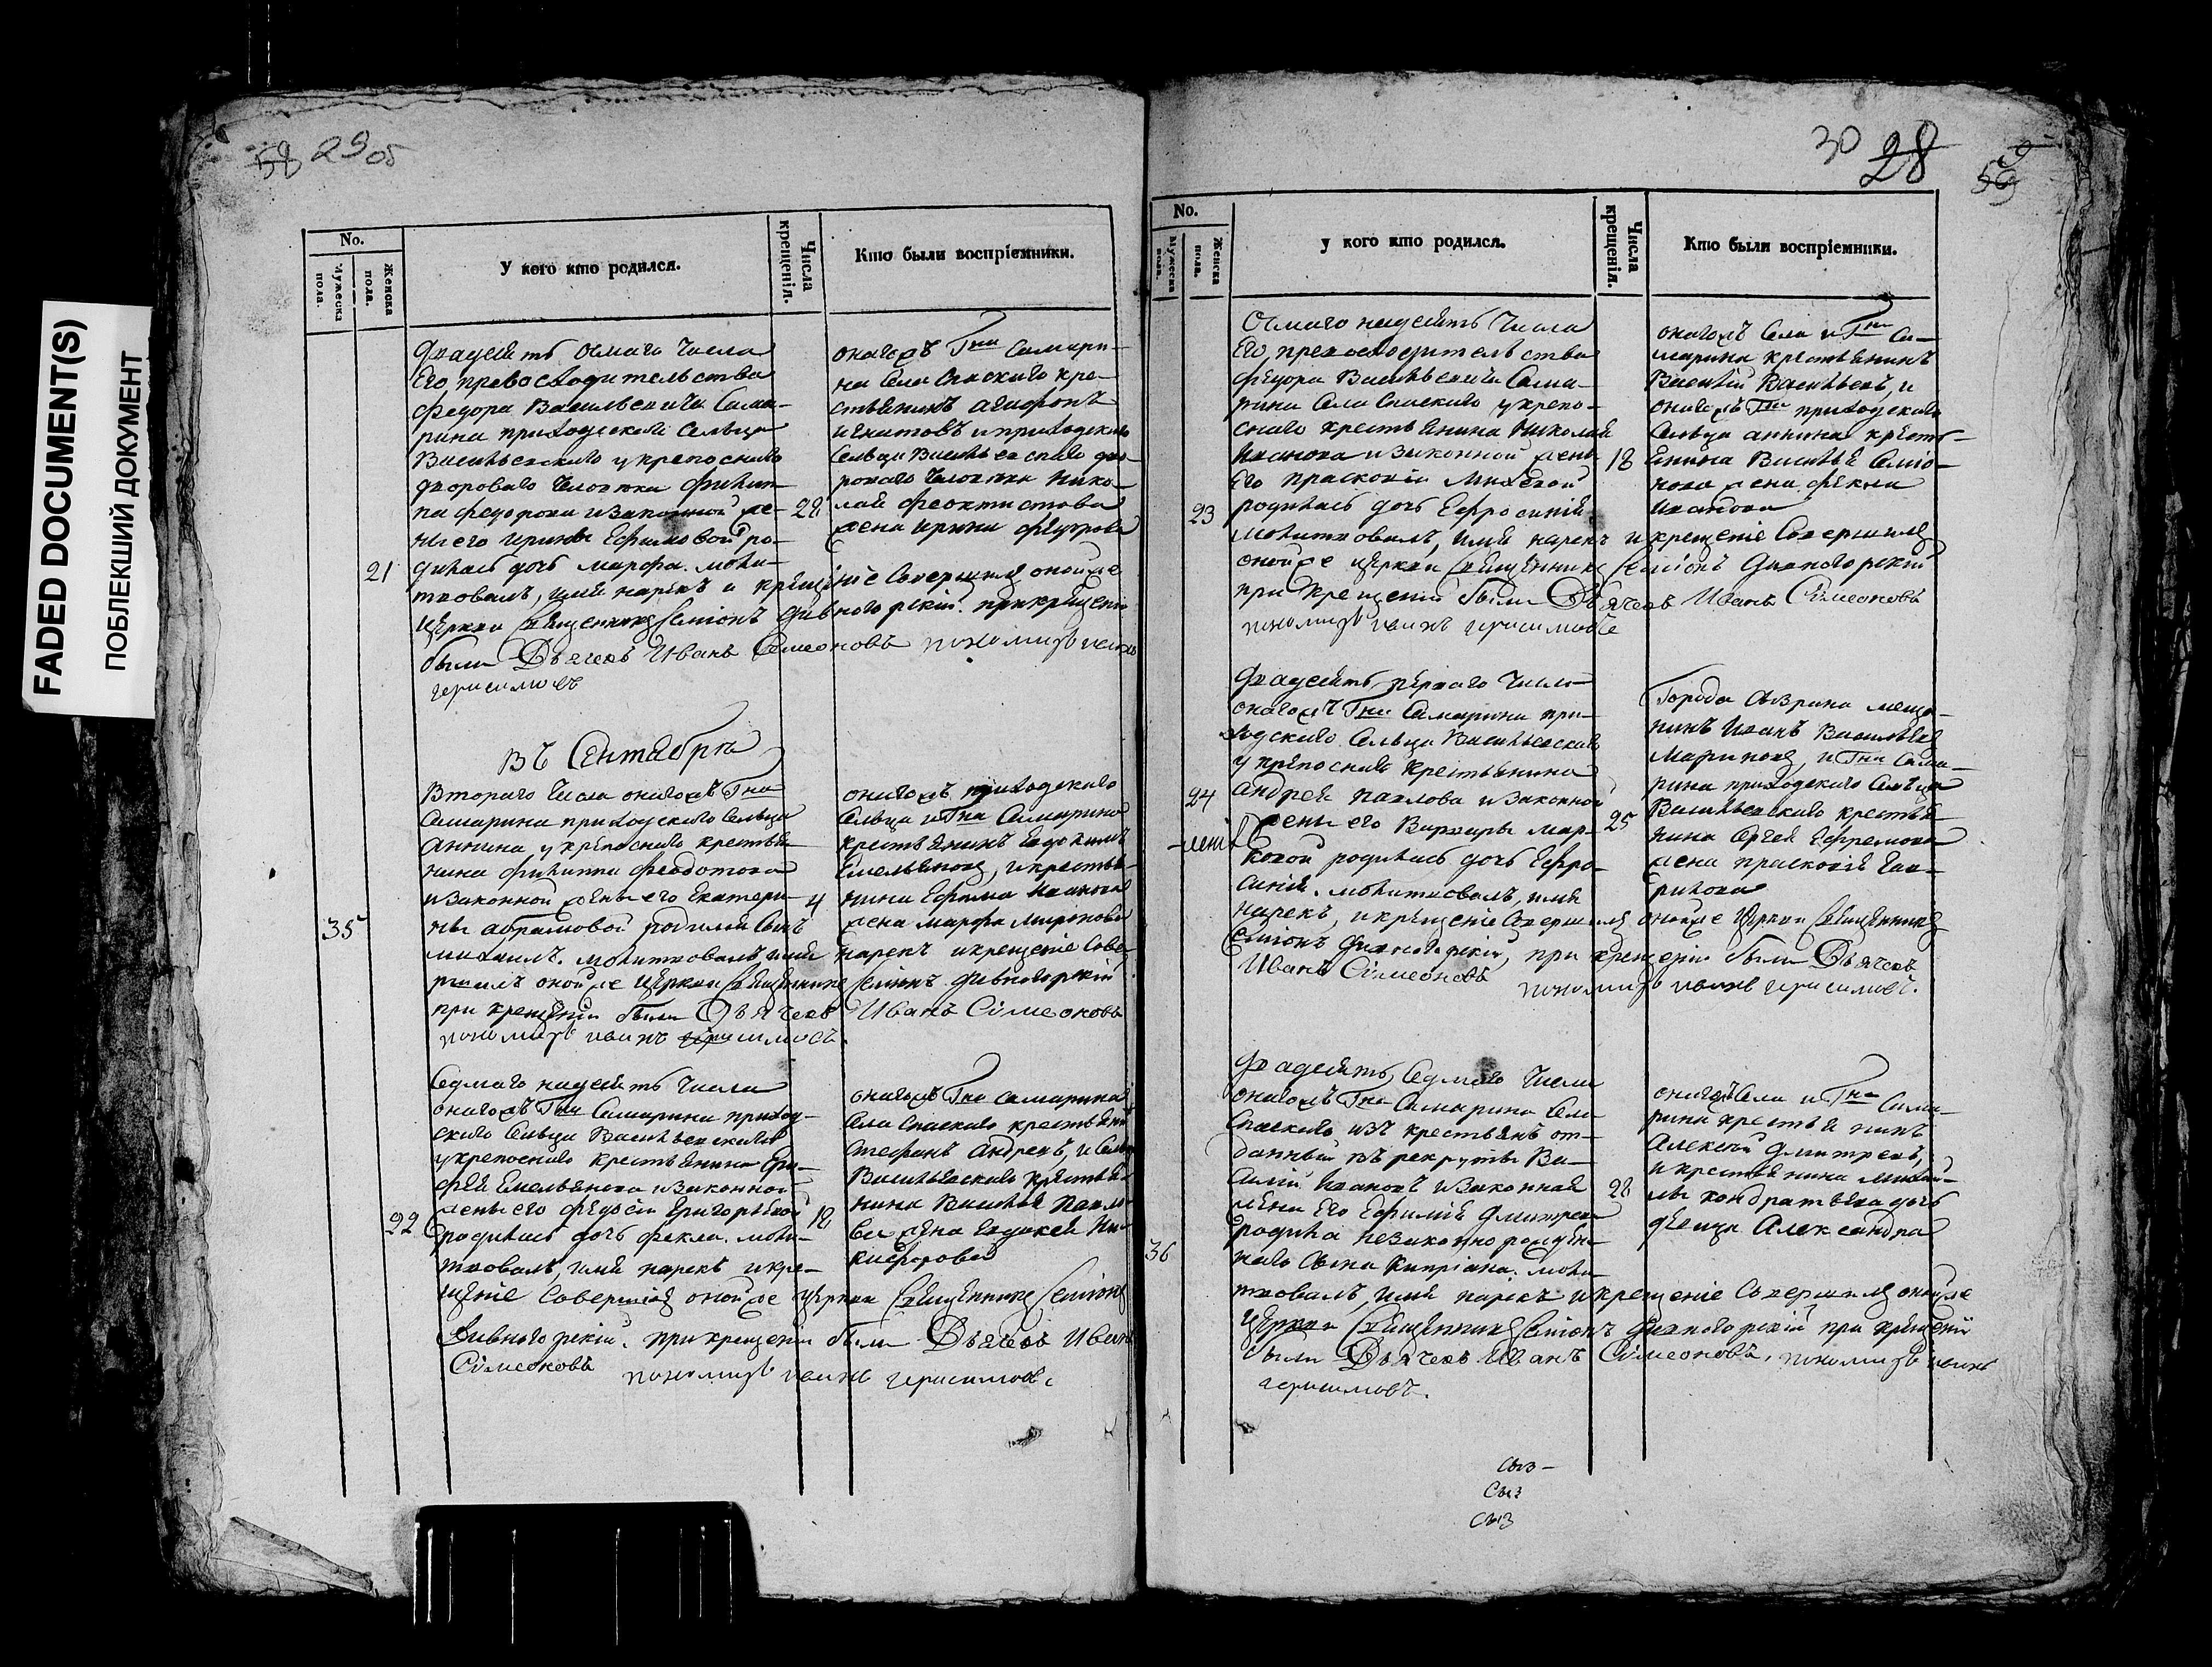 FADED DOCUMENT(S)
ПОБЛЕКШИЙ ДОКУМЕНТ
58 29 об
No.
Мужеска пола.
Женска пола.
У кого кто родился.
Числа крещенія.
Кто были воспріемники.
Двадесять осмаго числа
Его превосходительства
Федора Васильевича Сама-
рина приходскаго сельца
Васильевскаго укрепоснаго
двороваго человека Филип-
па Федорова и законной же-
ны его Ирины Ефимовой ро-
21
дилась дочь Марфа. моли-
твовалъ, имя нарекъ и крещеніе совершилъ оной же
церкви священникъ Семіонъ Дивногорскій. при крещеніи
были Дьячекъ Иванъ Симеоновъ пономарь
Герасимовъ
28
онагожъ Гна Самари-
на села Спаскаго кре-
стьянинъ Агафонъ
Игнатовъ и приходскаго
сельца Васильевскаго дво-
роваго человека Нико-
лая Феоктистова
жена Ирина Федорова
Въ Сентябрѣ
Втораго числа онагожъ Гна
Самарина приходскаго сельца
Аннина укрепоснаго крестья-
нина Филиппа Феодотова
и законной жены его Екатери-
35
ны Абрамовой родился сынъ
Михаилъ. молитвовалъ, имя нарекъ и крещеніе совер-
шилъ оной же церкви священникъ Семіонъ Дивногорскій
при крещеніи были Дьячекъ Иванъ Симеоновъ
пономарь
4
онагожъ приходскаго
сельца и Гна Самарина
крестьянинъ Евдокимъ
Емельяновъ, и крестья-
нина Ефима Иванова
жена Марфа Миронова
Седмаго надесять числа
онагожъ Гна Самарина приход-
скаго сельца Васильевскаго
укрепоснаго крестьянина Еро-
фея Емельянова и законной
жены его Федосіи Григорьевой
22
родилась дочь Фекла. моли-
твовалъ, имя нарекъ и кре-
щеніе совершилъ оной же церкви священникъ Семіонъ
Дивногорскій. при крещеніи были Дьячекъ Иванъ
Симеоновъ пономарь Герасимовъ
18
онагожъ Гна Самарина
села Спаскаго крестьянинъ
Стефанъ Андреевъ, и сельца
Васильевскаго крестья-
нина Василья Павло-
ва жена Евдокея Ни-
кифорова
30 28 59
No.
Мужеска пола.
Женска пола.
У кого кто родился.
Числа крещенія.
Кто были воспріемники.
Осмаго надесять числа
Его превосходительства
Федора Васильевича Сама-
рина села Спаскаго укрепо-
снаго крестьянина Николая
Иванова и законной жены
его Прасковіи Михеевой
23
родилась дочь Ефросинія
молитвовалъ, имя нарекъ и крещеніе совершилъ
оной же церкви священникъ Семіонъ Дивногорскій
при крещеніи были Дьячекъ Иванъ Симеоновъ
пономарь Герасимовъ
18
онагожъ села и Гна Са-
марина крестьянинъ
Василій Васильевъ, и
онагожъ Гна приходскаго
сельца Аннина кресть-
янина Василья Семіо-
нова жена Фекла
Иванова
Двадесять перваго числа
онагожъ Гна Самарина при-
ходскаго сельца Васильевскаго
укрепоснаго крестьянина
24
Андрея Павлова и законной
жены его Варвары Мар-
ковой родилась дочь Ефро-
синія. молитвовалъ, имя
нарекъ, и крещеніе совершилъ оной же церкви священникъ
Семіонъ Дивногорскій, при крещеніи были Дьячекъ
Иванъ Симеоновъ пономарь Герасимовъ.
25
Города Сызрана меща-
нинъ Иванъ Васильевъ
и Гна Сама-
рина приходскаго сельца
Васильевскаго крестья-
нина Сергея Ефремова
жена Прасковія Гав-
рилова
Двадесять седмаго числа
онагожъ Гна Самарина села
Спаскаго изъ крестьянъ от-
данный въ рекруты Ва-
силій Ивановъ и законная
жена его Ефимія Дмитрева
родила незаконно рожден-
36
наго сына Кипріана. моли-
твовалъ, имя нарекъ и крещеніе совершилъ оной же
церкви священникъ Семіонъ Дивногорскій при крещеніи
были Дьячекъ Иванъ Симеоновъ, пономарь
Герасимовъ.
28
онагожъ села и Гна Сама-
рина крестьянинъ
Алексей Дмитревъ,
и крестьянина Михай-
лы Кондратьева дочь
девица Александра
Сыз-
Сыз
Сыз